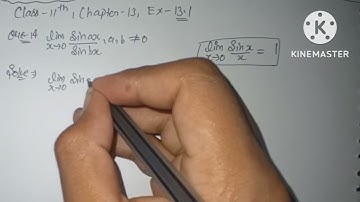 Class-11th, Chapter-13, Ex-13.1
Que-14 lim x→0 sin ax / sin bx, a, b ≠ 0
lim x→0 sin x / x = 1
Solve ⇒ lim x→0 sin
KINEMASTER